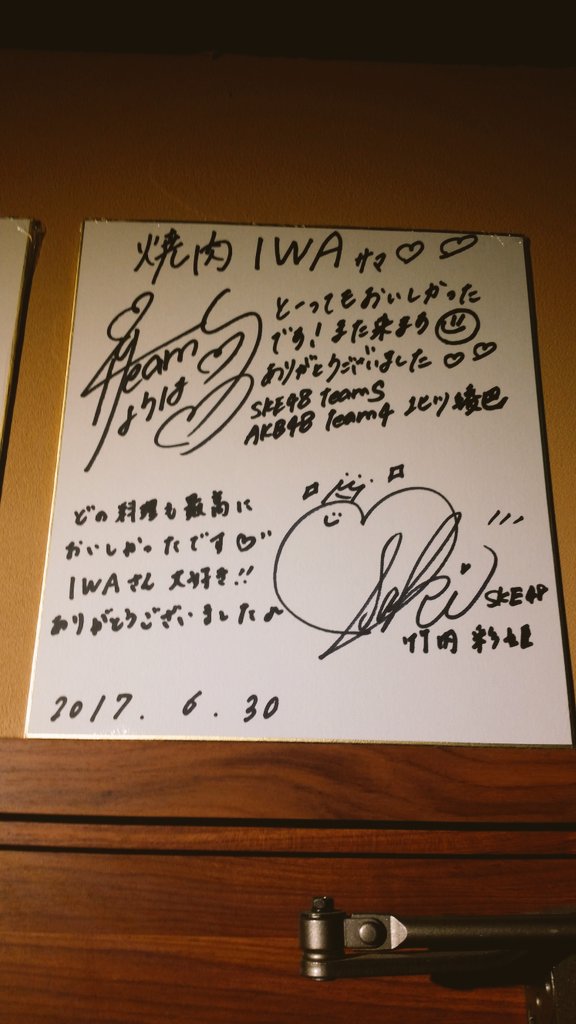 焼肉 IWA サマ
とーってもおいしかった
です！また来ます
ありがとうございました
SKE48 teamS
AKB48 Team4 北川綾巴
teamS
どの料理も最高に
おいしかったです
IWAさん 大好き!!
ありがとうございました♪
Saki
SKE48
竹内 彩姫
2017. 6. 30